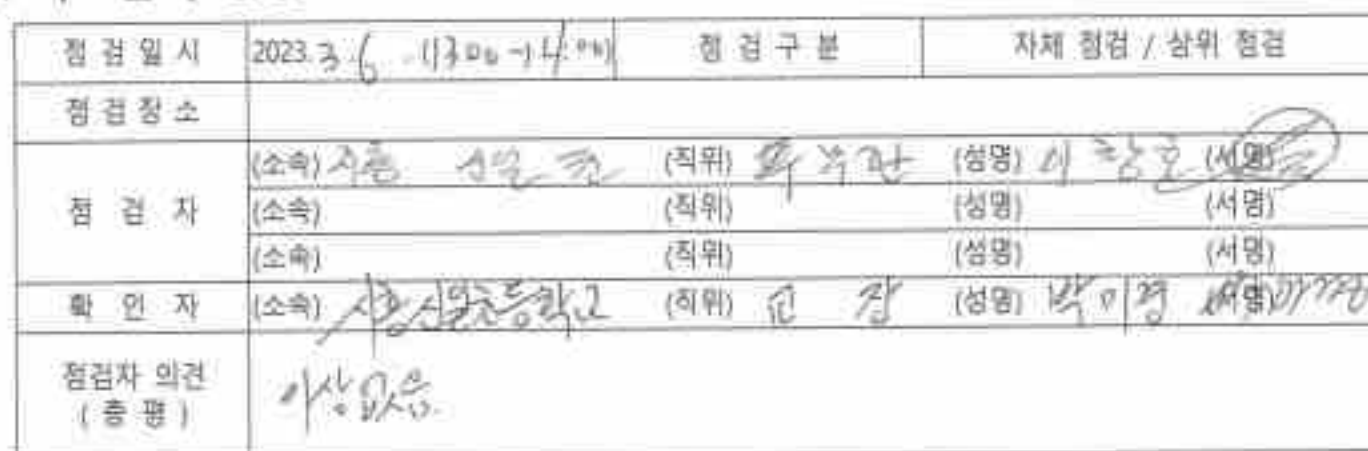 점검일시 2023. 3. 6 점검구분 자체 점검 / 상위 점검
점검장소
점 검 자 (소속) 시흥 신일초 (직위) (성명) 이창호 (서명)
(소속) (직위) (성명) (서명)
(소속) (직위) (성명) (서명)
확 인 자 (소속) 시흥신일초등학교 (직위) 교 장 (성명) 박미경 (서명)
점검자 의견
( 총 평 )
이상없음.